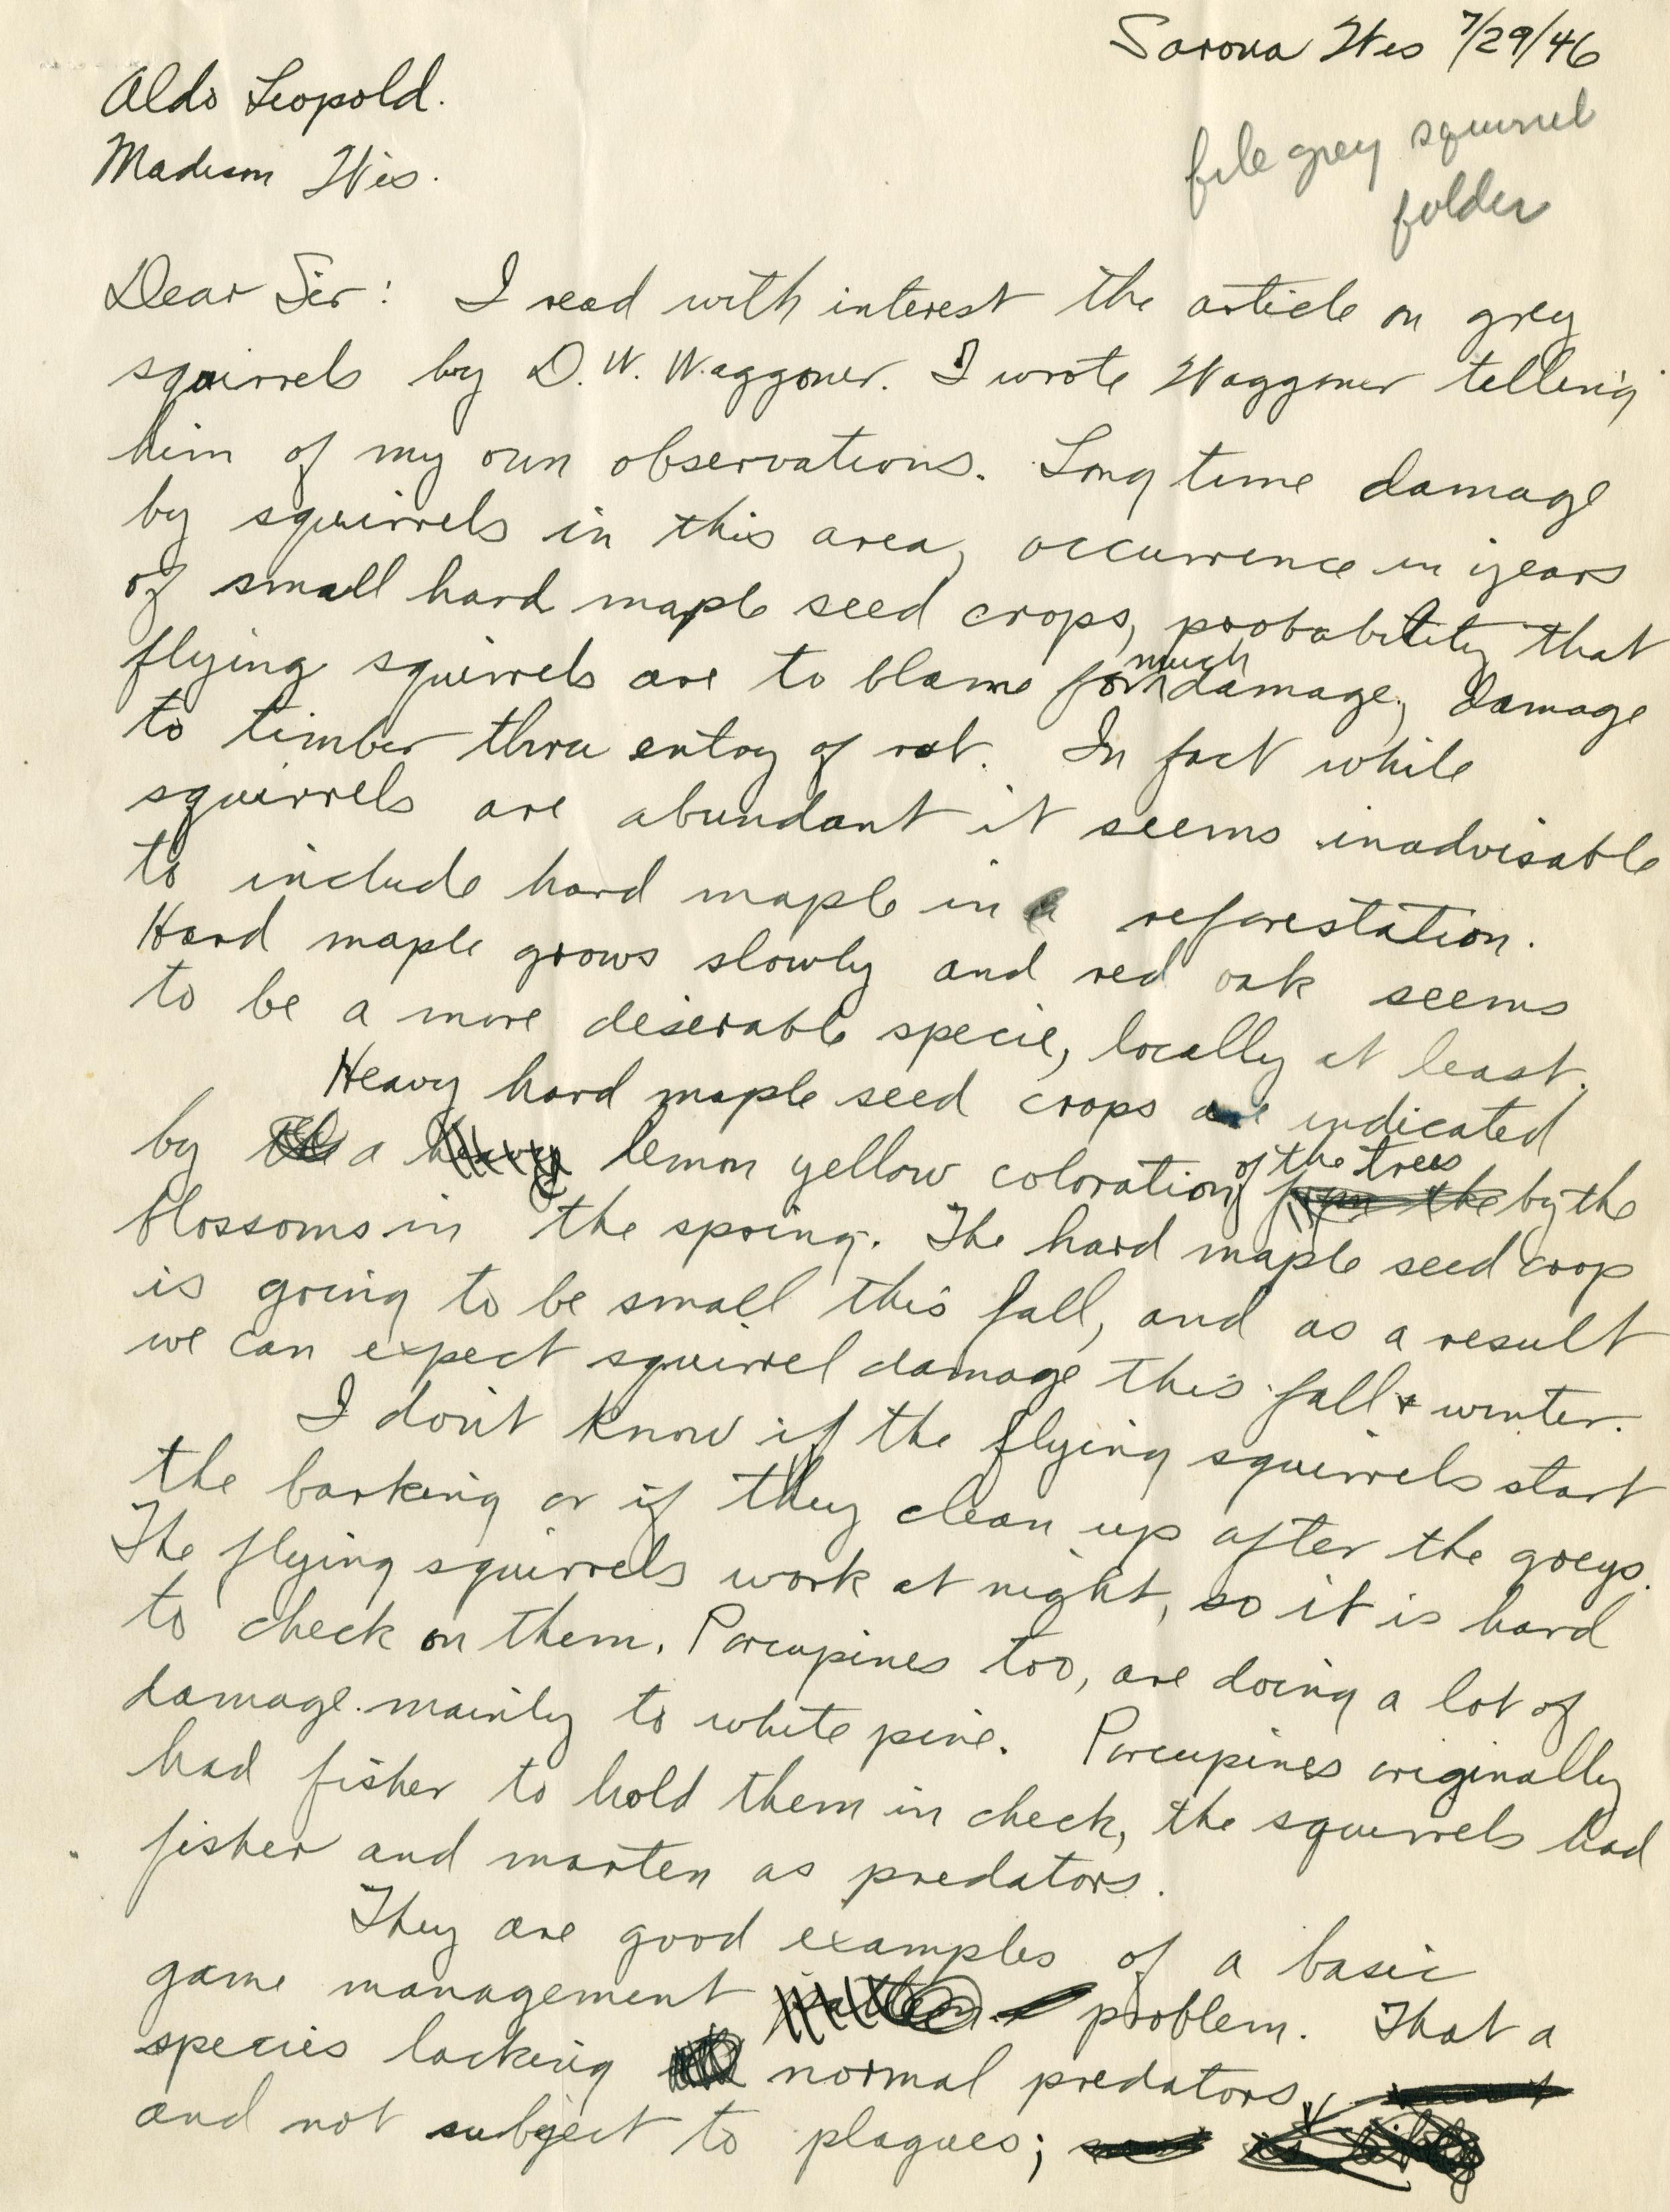 Sarona Wis 7/29/46
Aldo Leopold.
Madison Wis.
file grey squirrel
folder
Dear Sir: I read with interest the article on grey
squirrels by D. W. Waggoner. I wrote Waggoner telling
him of my own observations. Long time damage
by squirrels in this area, occurrence in years
of small hard maple seed crops, probability that
flying squirrels are to blame for much damage, damage
to timber thru entry of rot. In fact while
squirrels are abundant it seems inadvisable
to include hard maple in reforestation.
Hard maple grows slowly and red oak seems
to be a more deserable specie, locally at least.
Heavy hard maple seed crops are indicated
by a lemon yellow coloration of the trees by the
blossoms in the spring. The hard maple seed crop
is going to be small this fall, and as a result
we can expect squirrel damage this fall & winter.
I don't know if the flying squirrels start
the barking or if they clean up after the greys.
The flying squirrels work at night, so it is hard
to check on them. Porcupines too, are doing a lot of
damage mainly to white pine. Porcupines originally
had fisher to hold them in check, the squirrels had
fisher and marten as predators.
They are good examples of a basic
game management problem. That a
species lacking normal predators,
and not subject to plagues;